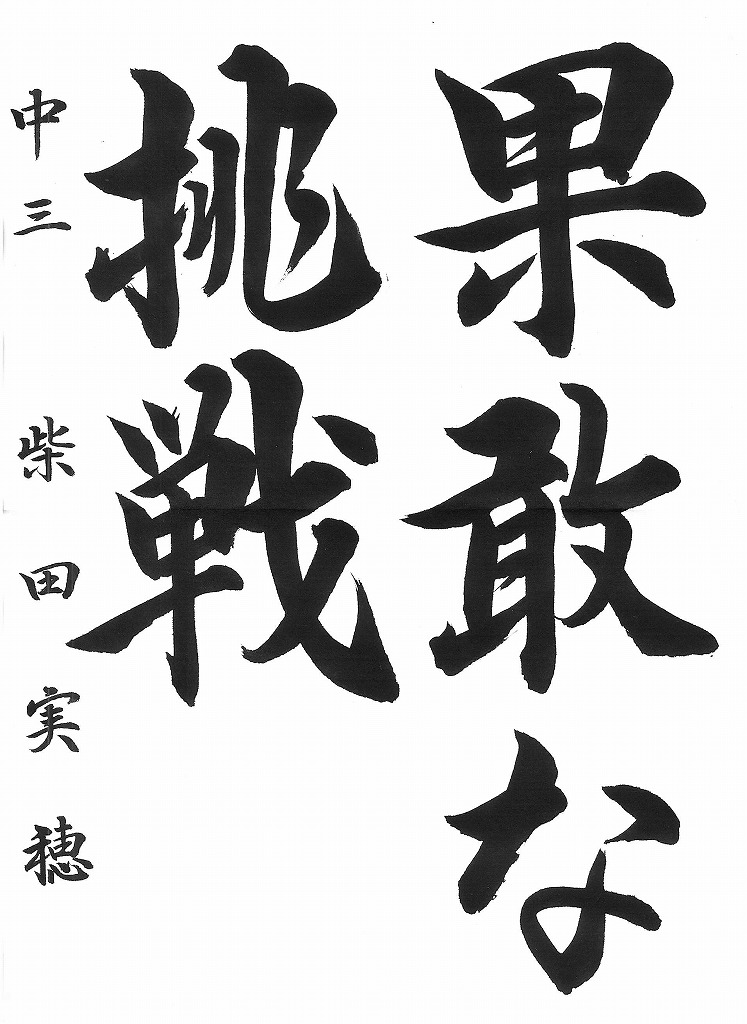 果敢な
挑戦
中三 柴田実穂